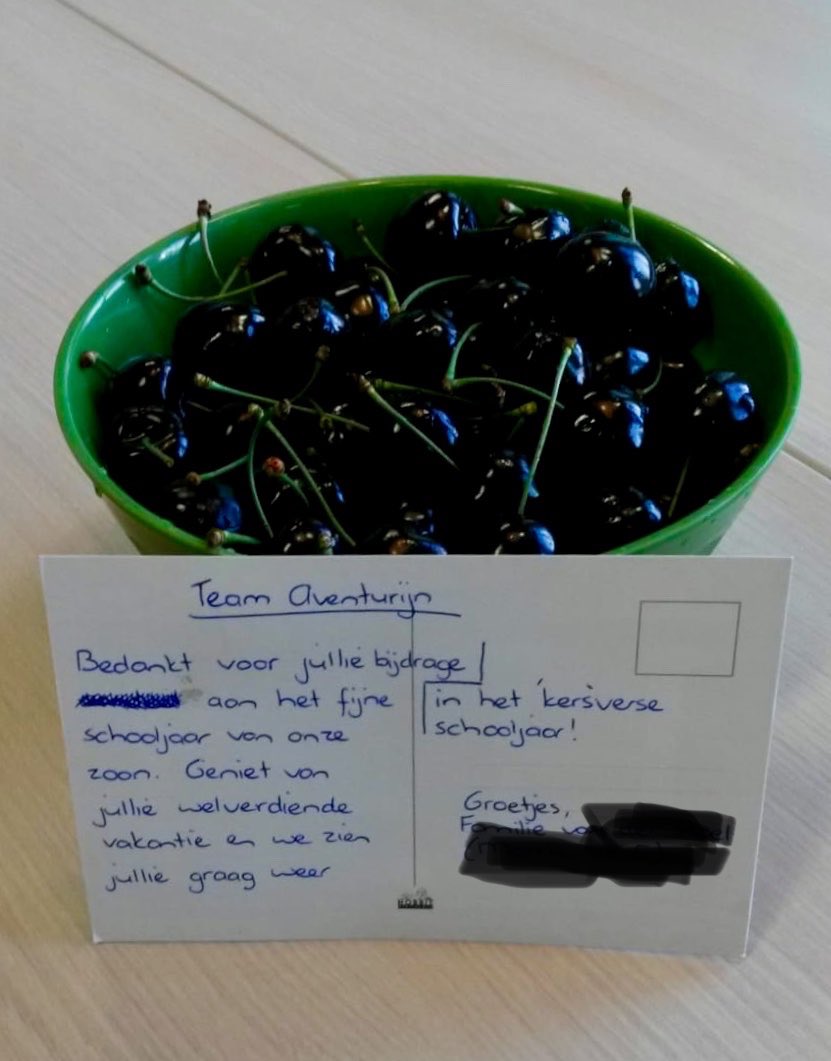 Team Aventurijn
Bedankt voor jullie bijdrage
aan het fijne
schooljaar van onze
zoon. Geniet van
jullie welverdiende
vakantie en we zien
jullie graag weer
in het 'kers'verse
schooljaar!
Groetjes,
Familie van